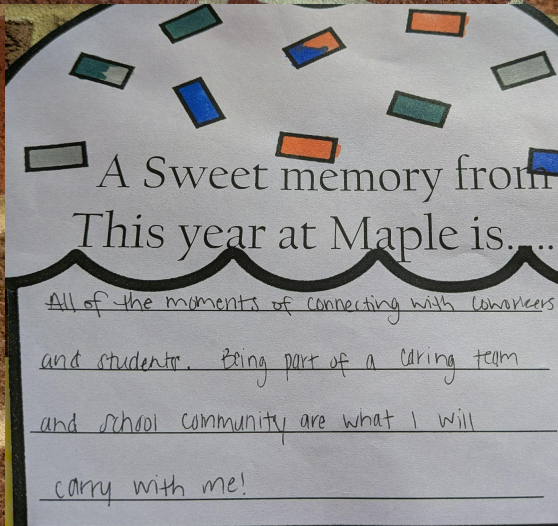 A Sweet memory from
This year at Maple is.....
All of the moments of connecting with coworkers
and students. Being part of a caring team
and school community are what I will
carry with me!